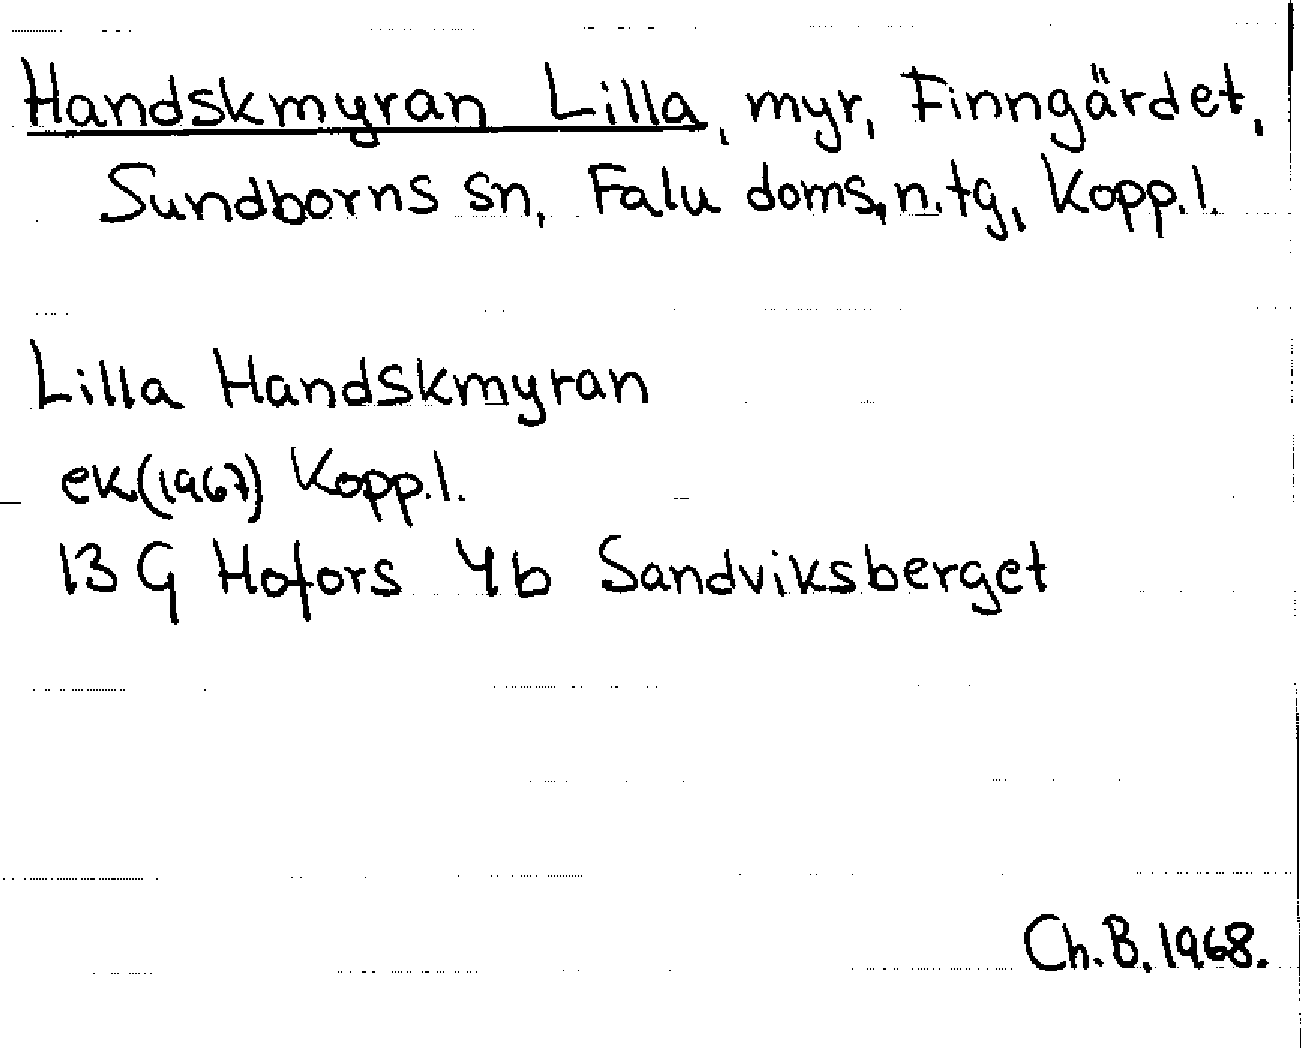 Handskmyran Lilla, myr, Finngärdet,
Sundborns sn, Falu doms, n.tg, Kopp.l.
Lilla Handskmyran
ek(1967) Kopp.l.
13 G Hofors 4b Sandviksberget
Ch.B.1968.